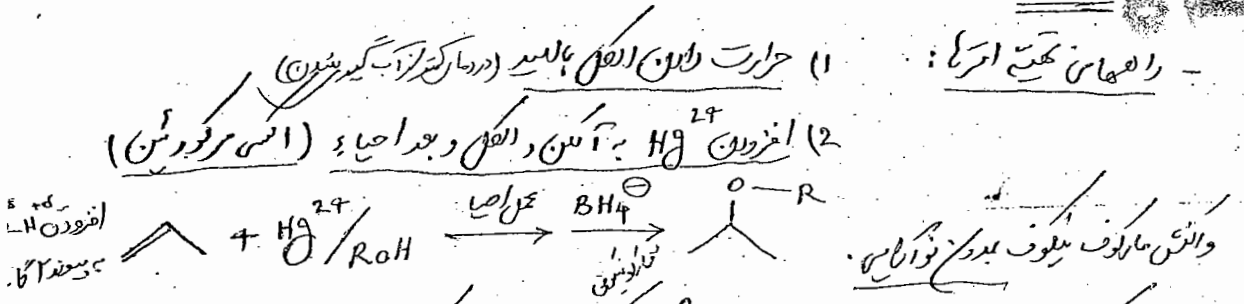 - راههای تهیه اترها: 1) حرارت دادن الکل با اسید (در دمای کمتر از آب گیری شدن)
2) افزودن Hg2+ به آلکن و الکل و بعد احیاء (اکسی مرکوردشن)
افزودن + Hg2+/ROH عمل احیا BH4⊖ O—R
واکنش مارکونیکوف بدون نوآرایی.
به پیوند 2گا.